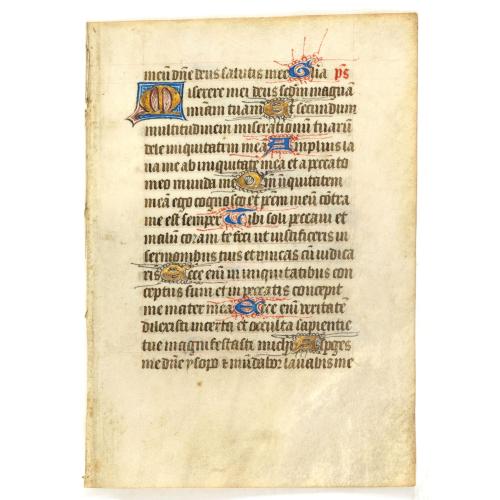 meū dñe deus salutis mee Glia ps
Miserere mei deus scdm magnā
miam tuam Et secundum
multitudinem miserationū tuarū
dele iniquitatem meā Amplius la
na me ab iniquitate mea et a peccato
meo munda me Qm̄ iniquitatem
meā ego cognosco et pctm meū cōtra
me est semper Tibi soli peccaui et
malū coram te feci ut iustificeris in
sermonibus tuis et vincas cū iudica
ris Ecce enī in iniquitatibus con
ceptus sum et in peccatis concepit
me mater mea Ecce enī veritatē
dilexisti incerta et occulta sapientie
tue manifestasti michi Aspges
me dñe ysopo et mūdabor lauabis me